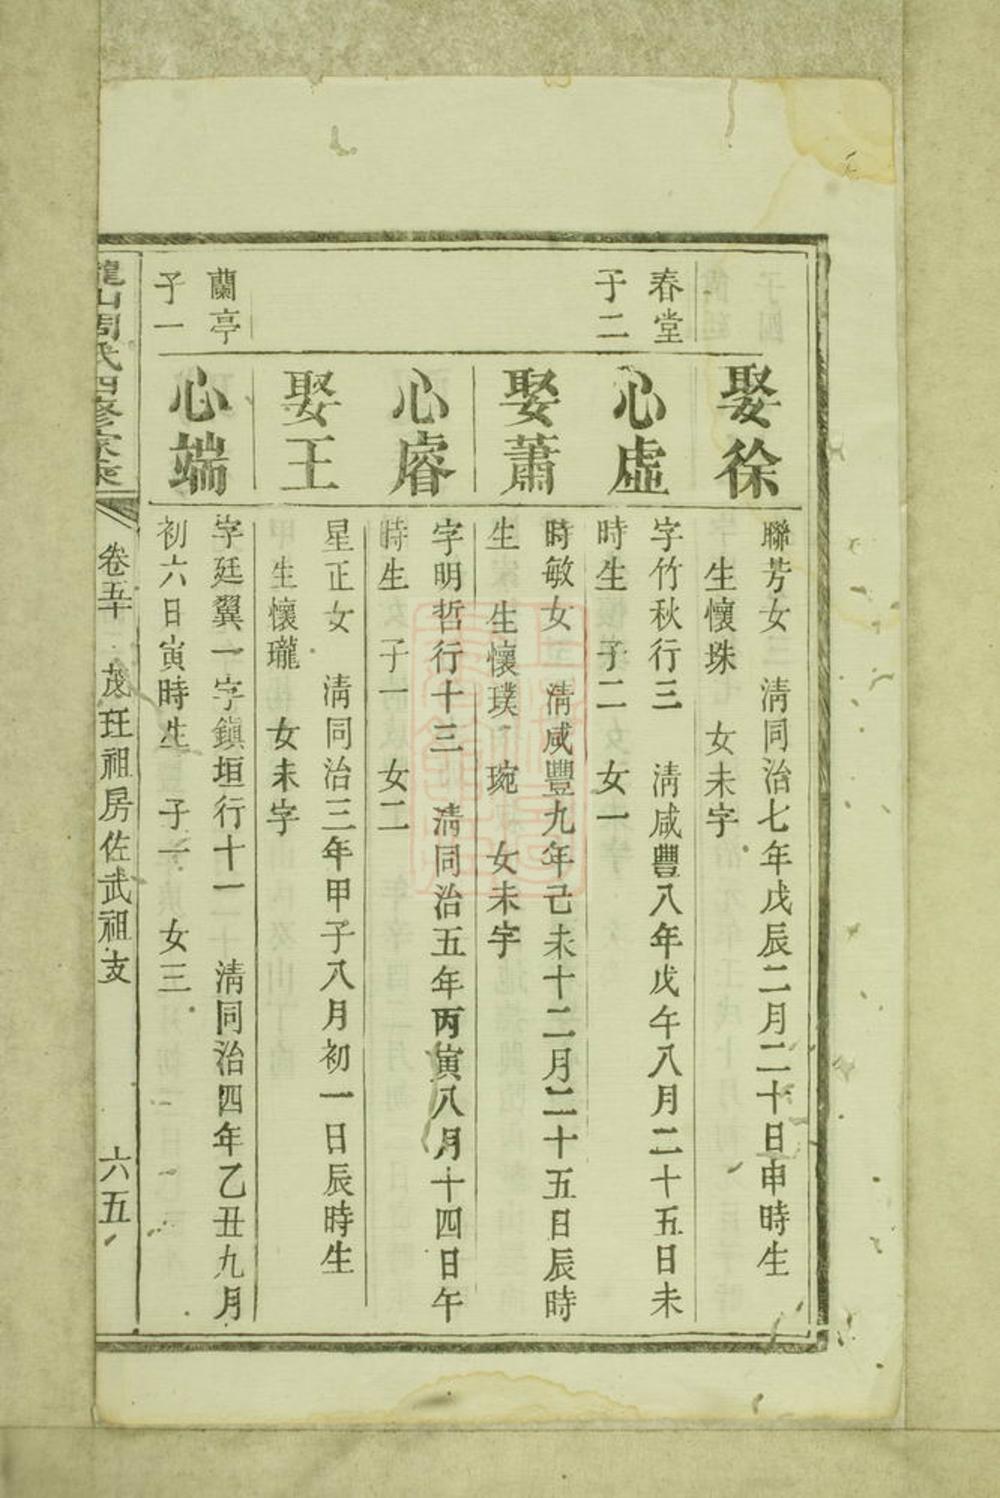 娶徐
聯芳女 清同治七年戊辰二月二十日申時生
生懷珠 女未字
春堂
子二
心虛
字竹秋行三 清咸豐八年戊午八月二十五日未
時生 子二 女一
娶蕭
時敏女 清咸豐九年己未十二月二十五日辰時
生 生懷璞 琬 女未字
心睿
字明哲行十三 清同治五年丙寅八月十四日午
時生 子一 女二
娶王
星正女 清同治三年甲子八月初一日辰時生
生懷瓏 女未字
蘭亭
子一
心端
字廷翼一字鎮垣行十一 清同治四年乙丑九月
初六日寅時生 子一 女三
龍山周氏四修家乘
卷五十 茂玨祖房佐武祖支
六五